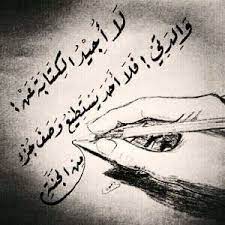 لَا أُجيْدُ الكِتَابَةِ عَنْ:
وَالِدتِي! فَلَا أحَد يَستَطِيعُ وَصْفَ جُزْءٍ
مِن الجَنَّة